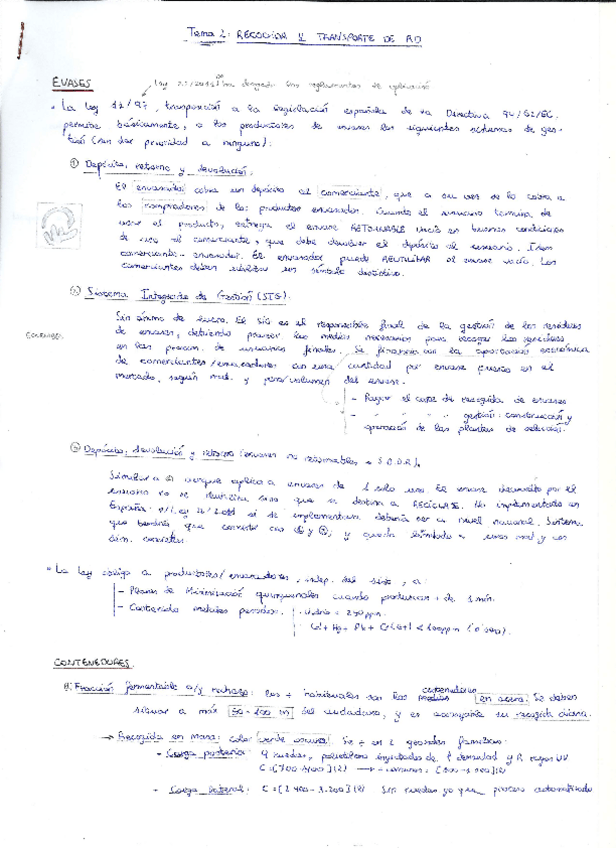 Tema 2: RECOGIDA Y TRANSPORTE DE RD
ENVASES
Ley 22/2011 ha derogado sus reglamentos de aplicación
La Ley 11/97, transposición a la legislación española de la Directiva 94/62/CE,
permite básicamente, a los productores de envases los siguientes sistemas de ges-
tión (sin dar prioridad a ninguno):
① Depósito, retorno y devolución.
El envasador cobra un depósito al comerciante, que a su vez se lo cobra a
los compradores de los productos envasados. Cuando el usuario termina de
usar el producto, entrega el envase RETORNABLE vacío en buenas condiciones
de uso al comerciante, que debe devolver el depósito al usuario. Idem
comerciante - envasador. El envasador puede REUTILIZAR el envase vacío. Los
comerciantes deben utilizar un símbolo distintivo.
② Sistema Integrado de Gestión (SIG).
Sin ánimo de lucro. El SIG es el responsable final de la gestión de los residuos
de envases, debiendo prever los medios necesarios para recoger los residuos
en las de usuarios finales. Se financian con la aportación económica
de comerciantes/envasadores con una cantidad por envase puesto en el
mercado, según mat. y peso/volumen del envase.
- Pagar el coste de recogida de envases
- gestión: construcción y
operación de las plantes de selección.
③ Depósito, devolución y retorno (envases no retornables - SDDR).
Similar a ① aunque aplica a envases de 1 solo uso. El envase devuelto por el
usuario no se reutiliza sino que se destina a RECICLARSE. No implementado en
España. Ley 22/2011 si se implementara debería ser a nivel nacional. Sistema
que tendría que coexistir con ① y ②, y queda limitado a mat. y
La Ley obliga a productores/envasadores, indep. del sist., a:
- Planes de Minimización quinquenales cuando produzcan + de
- Contenido metales pesados.
Cd + Hg + Pb + Cr(6+) < 100ppm
CONTENEDORES
Fracción fermentable o/y rechazo: Los + habituales son los contenedores en acera. Se deben
situar a máx 50-100 m del ciudadano, y es aconsejable su recogida diaria.
→ Recogida en masa: color verde oscuro. Se ÷ en 2 grandes familias:
- Carga posterior: 4 ruedas, polietileno inyectado de ↑ densidad y R rayos UV
- Carga lateral: C=[2.400-3.200](l) Sin ruedas ya que proceso automatizado